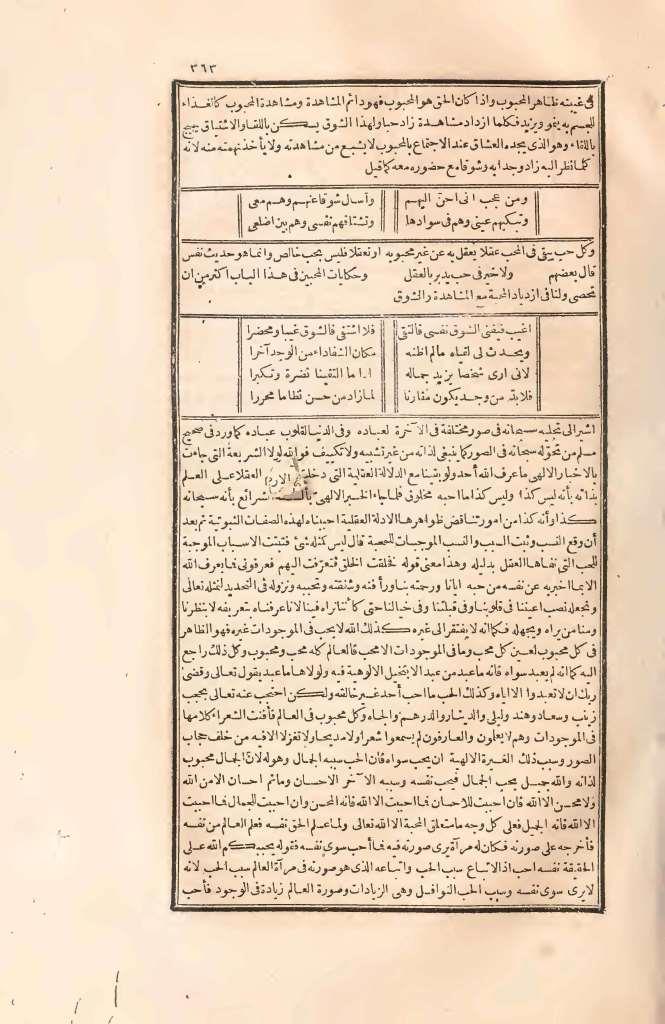 ٣٦٣
فى غيبته ظاهر المحبوب واذا كان الحق هو المحبوب فهو دائم المشاهدة ومشاهدة المحبوب كالغذاء
للجسم به ينمو ويزيد فكلما ازداد مشاهدة زاد حبا ولهذا الشوق يسكن باللقاء والاشتياق يهيج
باللقاء وهو الذى يجده العشاق عند الاجتماع بالمحبوب لا يشبع من مشاهدته ولا يأخذ نهمته منه لانه
كلما نظر اليه زاد وجدا به وشوقا مع حضوره معه كما قيل
ومن عجب انى احن اليهم وأسأل شوقا عنهم وهم معى
وتبكيهم عينى وهم فى سوادها وتشتاقهم نفسى وهم بين اضلعى
وكل حب يبقى فى المحب عقلا يعقل به عن غير محبوبه او تعقلا فليس بحب خالص وانما هو حديث نفس
قال بعضهم ولا خير فى حب يدبر بالعقل وحكايات المحبين فى هذا الباب اكثر من ان
تحصى ولنا فى ازدياد المحبة مع المشاهدة والشوق
اغيب فيفنى الشوق نفسى فالتقى فلا اشتفى فالشوق غيبا ومحضرا
ويحدث لى لقياه مالم اظنه مكان الشفا داء من الوجد آخرا
لانى ارى شخصا يزيد جماله اذا ما التقينا نضرة وتكبرا
فلا بد من وجد يكون مقارنا لما زاد من حسن نظاما محررا
اشير الى تجليه سبحانه فى صور مختلفة فى الآخرة لعباده وفى الدنيا لقلوب عباده كما ورد فى صحيح
مسلم من تحوّله سبحانه فى الصور كما ينبغى لذاته من غير تشبيه ولا تكييف فوالله لولا الشريعة التى جاءت
بالاخبار الالهى ما عرف الله أحد ولو بقينا مع الدلالة العقلية التى العقلا على العلم
بذاته بأنه ليس كذا وليس كذا ما احبه مخلوق فلما جاء الخبر الالهى بألسنة الشرائع بأنه سبحانه
كذا وأنه كذا من امور تناقض ظواهرها الادلة العقلية احببناه لهذه الصفات الثبوتية ثم بعد
أن وقع النسب وثبت السبب والنسب الموجبات للمحبة قال ليس كمثله شئ فثبتت الاسباب الموجبة
للحب التى نفاها العقل بدليله وهذا معنى قوله فخلقت الخلق فتعرّفت اليهم فعرفونى فما يعرف الله
الا بما اخبر به عن نفسه من حبه ايانا ورحمته بنا ورأفته وشفقته وتحببه ونزوله فى التحديد لنمثله تعالى
ونجعله نصب اعيننا فى قلوبنا وفى قبلتنا وفى خيالنا حتى كأننا نراه فينا لانا عرفناه بتعريفه لا بنظرنا
ومنا من يراه ويجهله فكما انه لا يفتقر الى غيره كذلك الله لا يحب فى الموجودات غيره فهو الظاهر
فى كل محبوب لعين كل محب وما فى الموجودات الا محب فالعالم كله محب ومحبوب وكل ذلك راجع
اليه كما انه لم يعبد سواه فانه ما عبد من عبد الا بتخيل الالوهية فيه ولولاها ما عبد يقول تعالى وقضى
ربك ان لا تعبدوا الا اياه وكذلك الحب ما احب أحد غير خالقه ولكن احتجب عنه تعالى بحب
زينب وسعاد وهند وليلى والدينار والدرهم والجاه وكل محبوب فى العالم فأفنت الشعراء كلامها
فى الموجودات وهم لا يعلمون والعارفون لم يسمعوا شعرا ولا مديحا ولا تغزلا الا فيه من خلف حجاب
الصور وسبب ذلك الغيرة الالهية ان يحب سواه فان الحب سببه الجمال وهو له لانّ الجمال محبوب
لذاته والله جميل يحب الجمال فيحب نفسه وسببه الآخر الاحسان وماتم احسان الا من الله
ولا محسن الا الله فان احببت للاحسان فما احببت الا الله فانه المحسن وان احببت للجمال فما احببت
الا الله فانه الجميل فعلى كل وجه ما متعلق المحبة الا الله تعالى ولما علم الحق نفسه فعلم العالم من نفسه
فأخرجه على صورته فكان له مرآة يرى صورته فيه فما أحب سوى نفسه فقوله يحببكم الله على
الحقيقة نفسه احب اذ الاتباع سبب الحب واتباعه الذى هو صورته فى مرآة العالم سبب الحب لانه
لا يرى سوى نفسه وسبب الحب النوافل وهى الزيادات وصورة العالم زيادة فى الوجود فأحب